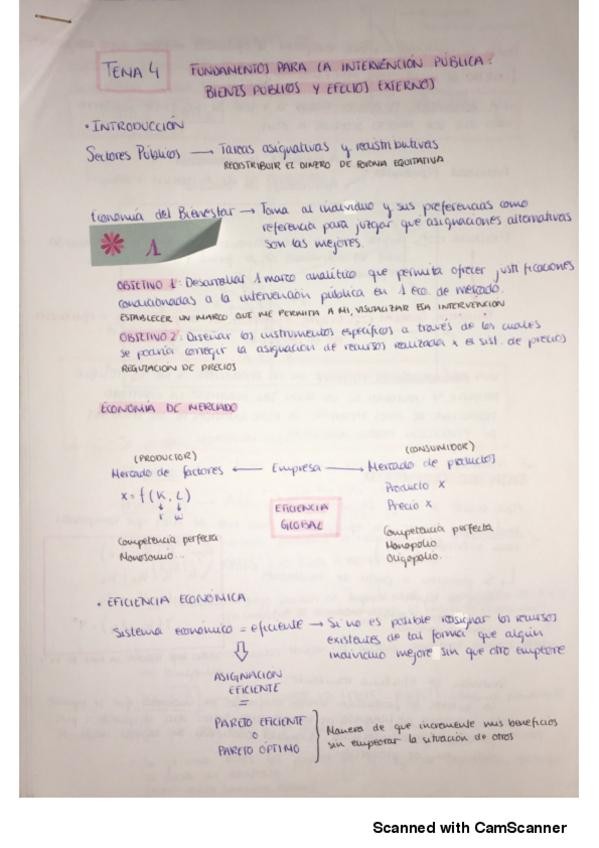 TEMA 4
FUNDAMENTOS PARA LA INTERVENCIÓN PÚBLICA:
BIENES PÚBLICOS Y EFECTOS EXTERNOS
• INTRODUCCIÓN
Sectores Públicos → Tareas asignativas y redistributivas
REDISTRIBUIR EL DINERO DE FORMA EQUITATIVA
Economía del Bienestar → Toma al individuo y sus preferencias como
referencia para juzgar que asignaciones alternativas
son las mejores.
1
OBJETIVO 1: Desarrollar 1 marco analítico que permita ofrecer justificaciones
condicionadas a la intervención pública en 1 eco. de mercado.
ESTABLECER UN MARCO QUE ME PERMITA A MI, VISUALIZAR ESA INTERVENCION
OBJETIVO 2: Diseñar los instrumentos específicos a través de los cuales
se podría corregir la asignación de recursos realizada x el sist. de precios
REGULACION DE PRECIOS
ECONOMÍA DE MERCADO
(PRODUCTOR) (CONSUMIDOR)
Mercado de factores ← Empresa → Mercado de productos
Producto X
x = f(K, L) Precio x
↓ ↓
r w
EFICIENCIA
GLOBAL
Competencia perfecta
Monosonio...
Competencia perfecta
Monopolio
Oligopolio.
• EFICIENCIA ECONÓMICA
Sistema económico = eficiente → Si no es posible reasignar los recursos
existentes de tal forma que algún
individuo mejore sin que otro empeore
ASIGNACION
EFICIENTE
=
PARETO EFICIENTE
O
PARETO ÓPTIMO
Manera de que incremente mis beneficios
sin empeorar la situación de otros
Scanned with CamScanner